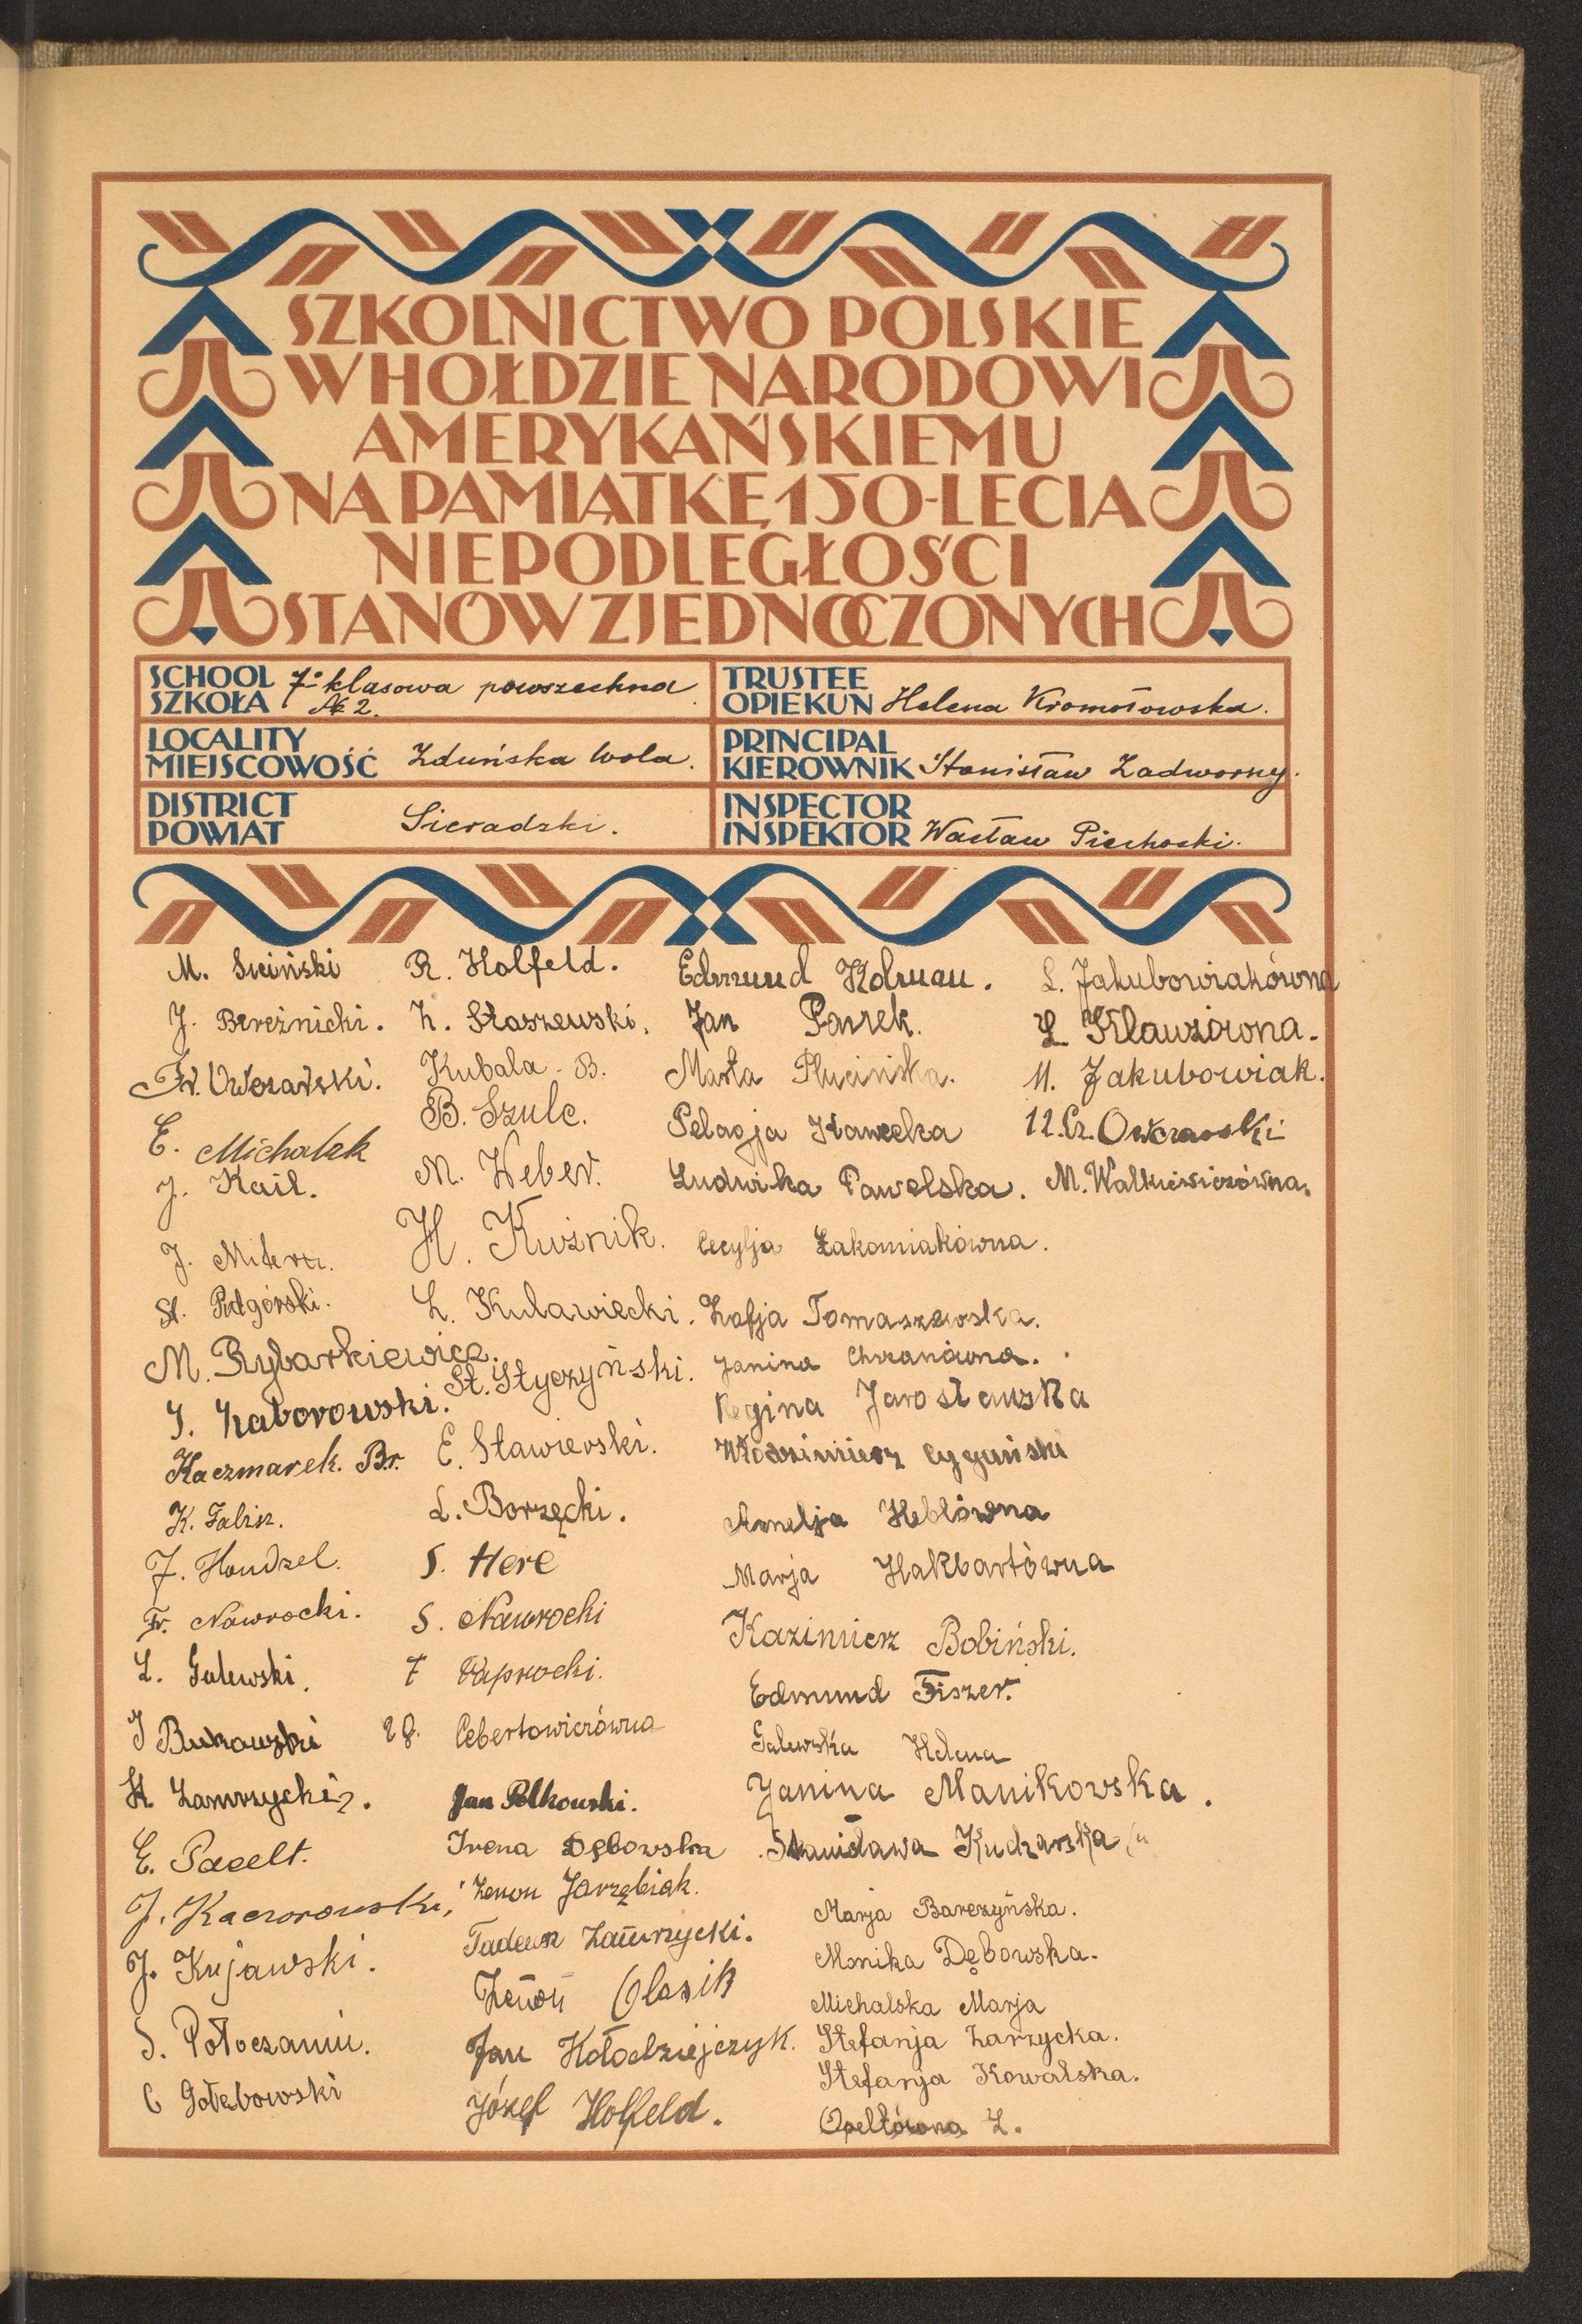 SZKOLNICTWO POLSKIE
W HOŁDZIE NARODOWI
AMERYKAŃSKIEMU
NA PAMIĄTKĘ 150-LECIA
NIEPODLEGŁOŚCI
STANÓW ZJEDNOCZONYCH
SCHOOL
SZKOŁA 7-klasowa powszechna
№ 2.
TRUSTEE
OPIEKUN Helena Kromołowska.
LOCALITY
MIEJSCOWOŚĆ Zduńska Wola.
PRINCIPAL
KIEROWNIK Stanisław Zadworny.
DISTRICT
POWIAT Sieradzki.
INSPECTOR
INSPEKTOR Wacław Piechocki.
M. Siciński
J. Bereźnicki.
Fr. Owczarski.
E. Michalek
J. Kail.
J. Mitera.
St. Podgórski.
M. Rybarkiewicz.
J. Zaborowski.
Kaczmarek. Br.
K. Galisz.
J. Houdzel.
Fr. Nawrocki.
L. Galewski.
J Bukowski
St Zamrzycki.
E. Pacelt.
J. Kaczorowski,
J. Kujawski.
S. Potoczanin.
C Gołębowski
R. Holfeld.
Z. Staszewski.
Kubala - B.
B. Szulc.
M. Weber.
H. Kuźnik.
L. Kulawiecki.
St. Styczyński.
E. Stawierski.
L. Borzęcki.
S. Herc
S. Nawrocki
T Paprocki.
28. Cebertowiczówna
Jan Polkowski.
Irena Dębowska
Zenon Jarzębiak.
Tadeusz Zamrzycki.
Zenon Olasik
Jan Kołodziejczyk.
Józef Holfeld.
Edmund Kolman.
Jan Pawek.
Marta Plucińska.
Pelagja Kawecka
Ludwika Pawelska.
Cecylja Łakomiakówna.
Zofja Tomaszewska.
Janina Chrzanówna.
Regina Jarosławska
Włodzimierz Cygański
Amelja Heblówna
Marja Hakbartówna
Kazimierz Bobiński.
Edmund Fiszer.
Galewska Helena
Janina Manikowska.
Stanisława Kucharska
Marja Barczyńska.
Monika Dębowska.
Michalska Marja
Stefanja Zarzycka.
Stefanja Kowalska.
Opeltówna Z.
L. Jakubowiakówna
L. Klauzówna.
M. Jakubowiak.
12. Cz. Owczarski
M. Walkiewiczówna.